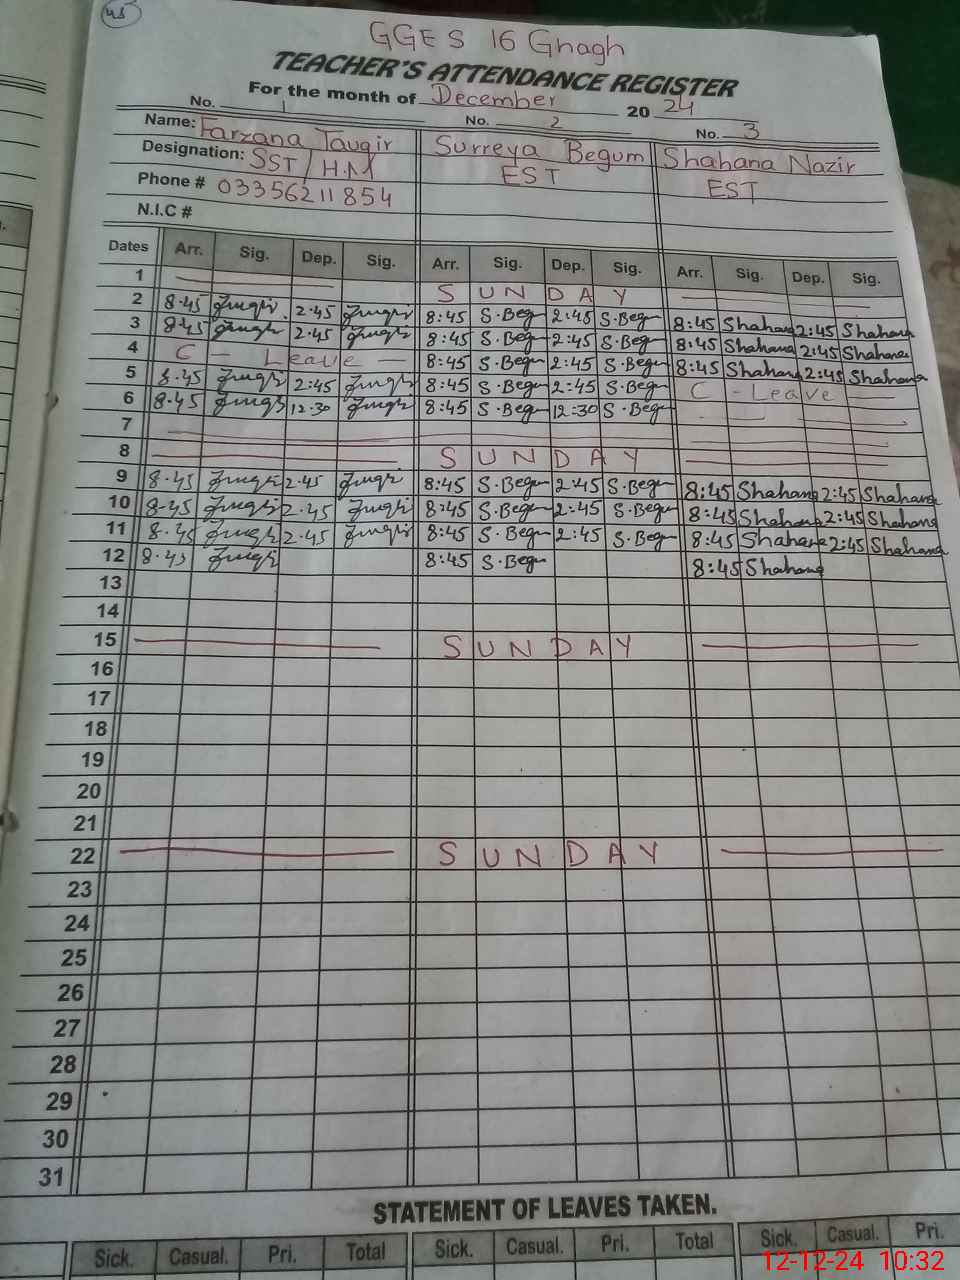 45
GGES 16 Ghagh
TEACHER'S ATTENDANCE REGISTER
For the month of December 2024
No. 1 No. 2 No. 3
Name: Farzana Tauqir Surreya Begum Shahana Nazir
Designation: SST/H.M EST EST
Phone # 03356211854
N.I.C #
Dates Arr. Sig. Dep. Sig. Arr. Sig. Dep. Sig. Arr. Sig. Dep. Sig.
1 SUNDAY
2 8-45 2.45 8:45 S.Begum 2:45 S.Begum 8:45 Shahana 2:45 Shahana
3 8-45 2.45 8:45 S.Begum 2:45 S.Begum 8:45 Shahana 2:45 Shahana
4 C - Leave - 8:45 S.Begum 2:45 S.Begum 8:45 Shahana 2:45 Shahana
5 8-45 2:45 8:45 S.Begum 2:45 S.Begum C - Leave
6 8-45 12-30 8:45 S.Begum 12:30 S.Begum
7
8 SUNDAY
9 8-45 2.45 8:45 S.Begum 2:45 S.Begum 8:45 Shahana 2:45 Shahana
10 8-45 2.45 8:45 S.Begum 2:45 S.Begum 8:45 Shahana 2:45 Shahana
11 8-45 2.45 8:45 S.Begum 2:45 S.Begum 8:45 Shahana 2:45 Shahana
12 8-45 8:45 S.Begum 8:45 Shahana
13
14
15 SUNDAY
16
17
18
19
20
21
22 SUNDAY
23
24
25
26
27
28
29
30
31
STATEMENT OF LEAVES TAKEN.
Sick. Casual. Pri. Total Sick. Casual. Pri. Total Sick. Casual. Pri.
12-12-24 10:32